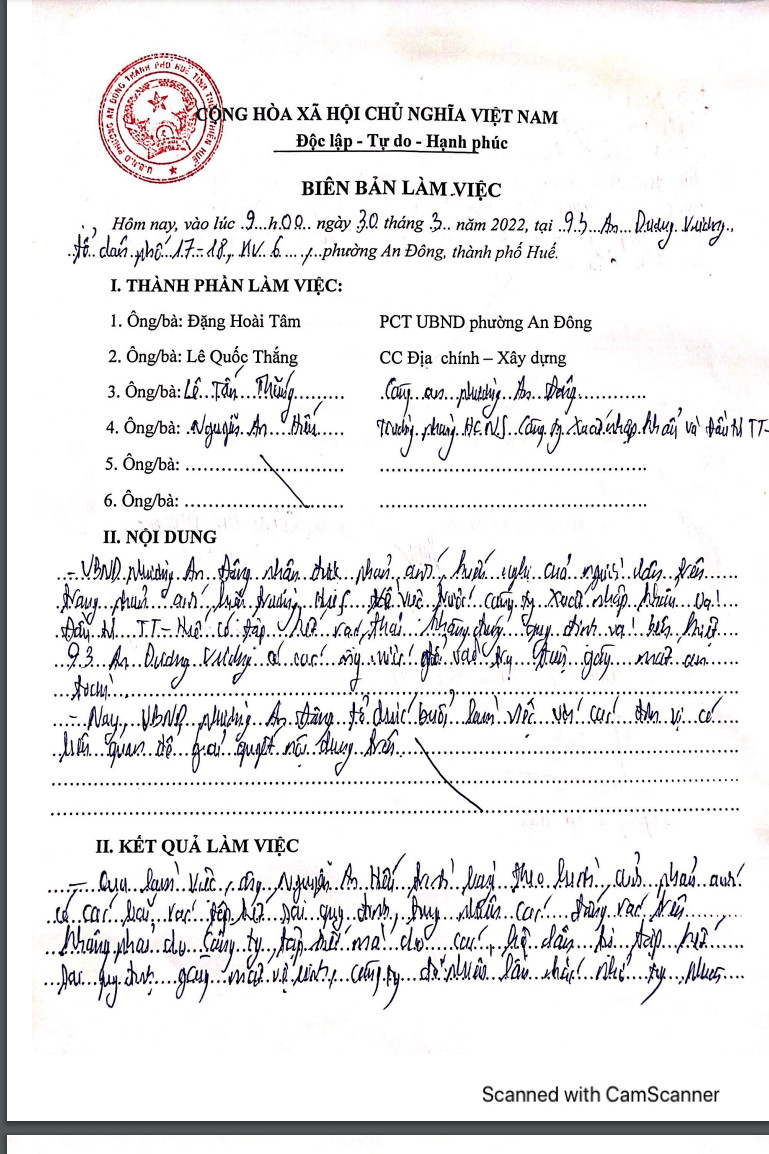 U.B.N.D PHƯỜNG AN ĐÔNG THÀNH PHỐ HUẾ TỈNH THỪA THIÊN HUẾ
CỘNG HÒA XÃ HỘI CHỦ NGHĨA VIỆT NAM
Độc lập - Tự do - Hạnh phúc
BIÊN BẢN LÀM VIỆC
Hôm nay, vào lúc 9 h.00 ngày 30 tháng 3 năm 2022, tại 93 An Dương Vương,
tổ dân phố 17-18, KV 6, phường An Đông, thành phố Huế.
I. THÀNH PHẦN LÀM VIỆC:
1. Ông/bà: Đặng Hoài Tâm PCT UBND phường An Đông
2. Ông/bà: Lê Quốc Thắng CC Địa chính – Xây dựng
3. Ông/bà: Lê Tấn Công an phường An Đông
4. Ông/bà: Nguyễn An Hiếu Trưởng phòng HCNS Công ty Xuất nhập khẩu và Đầu tư TT-
5. Ông/bà:
6. Ông/bà:
II. NỘI DUNG
- UBND phường An Đông nhận được phản ánh, kiến nghị của người dân trên
trang phản ánh hiện trường Huế về việc trước công ty Xuất nhập khẩu và
Đầu tư TT-Huế có tập kết rác thải không đúng quy định và bên kiệt
93 An Dương Vương có các ống nước gây mất an
toàn.
- Nay, UBND phường An Đông tổ chức buổi làm việc với các đơn vị có
liên quan để giải quyết nội dung trên.
II. KẾT QUẢ LÀM VIỆC
- Qua làm việc, ông Nguyễn An Hiếu trình bày theo hình ảnh phản ánh
có các loại rác tập kết sai quy định, tuy nhiên các đống rác trên
không phải do Công ty tập kết mà do các hộ dân tập kết
sai quy định gây mất vệ sinh, công ty đã nhiều lần nhắc nhở
Scanned with CamScanner